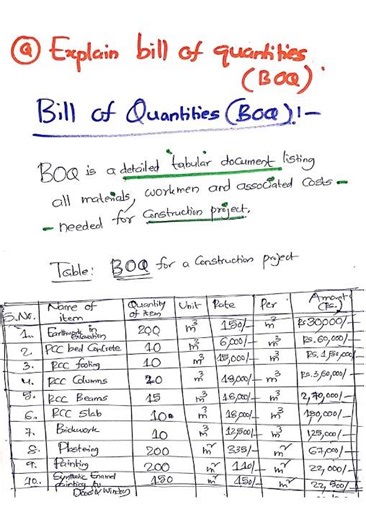 Q Explain bill of quantities
(BOQ).
Bill of Quantities (BOQ):-
BOQ is a detailed tabular document listing
all materials, workmen and associated costs -
- needed for Construction project.
Table: BOQ for a Construction project
S.No. Name of item Quantity of item Unit Rate Per Amount (Rs.)
1. Earthwork in excavation 200 m³ 150/- m³ Rs 30000/-
2. PCC bed Concrete 10 m³ 6,000/- m³ Rs. 60,000/-
3. RCC footing 10 m³ 15,000/- m³ Rs. 1,50,000/-
4. RCC Columns 20 m³ 18,000/- m³ Rs. 3,60,000/-
5. RCC Beams 15 m³ 18,000/- m³ 2,70,000/-
6. RCC Slab 10 m³ 18,000/- m³ 180,000/-
7. Brickwork 10 m³ 12,500/- m³ 125,000/-
8. Plastering 200 m² 335/- m² 67,000/-
9. Painting 200 m² 110/- m² 22,000/-
10. Synthetic Enamel painting to Doors & Windows 150 m² 150/- m² 22,500/-